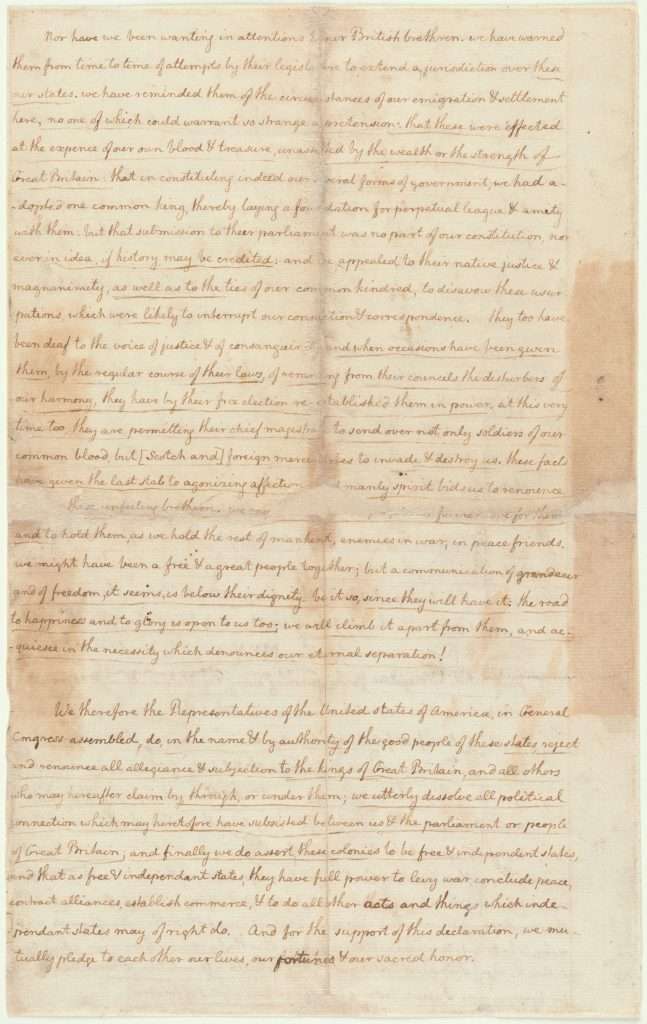 Nor have we been wanting in attentions to our British brethren. we have warned
them from time to time of attempts by their legislature to extend a jurisdiction over these
our states. we have reminded them of the circumstances of our emigration & settlement
here, no one of which could warrant so strange a pretension: that these were effected
at the expence of our own blood & treasure, unassisted by the wealth or the strength of
Great Britain: that in constituting indeed our several forms of government, we had a-
-dopted one common king, thereby laying a foundation for perpetual league & amity
with them: but that submission to their parliament was no part of our constitution, nor
ever in idea, if history may be credited: and we appealed to their native justice &
magnanimity, as well as to the ties of our common kindred, to disavow these usur
pations, which were likely to interrupt our connection & correspondence. They too have
been deaf to the voice of justice & of consanguinity; and when occasions have been given
them, by the regular course of their laws, of removing from their councils the disturbers of
our harmony, they have by their free election re-established them in power. at this very
time too they are permitting their chief magistrate to send over not only soldiers of our
common blood but [Scotch and] foreign mercenaries to invade & destroy us. these facts
have given the last stab to agonizing affection and manly spirit bids us to renounce
these unfeeling brethren. we must former love for them
and to hold them, as we hold the rest of mankind, enemies in war, in peace friends.
we might have been a free & a great people together; but a communication of grandeur
and of freedom, it seems, is below their dignity. be it so, since they will have it: the road
to happiness and to glory is open to us too; we will climb it apart from them, and ac-
-quiesce in the necessity which denounces our eternal separation!
We therefore the Representatives of the United states of America, in General
Congress assembled, do, in the name & by authority of the good people of these states, reject
and renounce all allegiance & subjection to the kings of Great Britain, and all others
who may hereafter claim by, through, or under them; we utterly dissolve all political
connection which may heretofore have subsisted between us & the parliament or people
of Great Britain; and finally we do assert these colonies to be free & independant states,
and that as free & independant states, they have full power to levy war conclude peace,
contract alliances, establish commerce, & to do all other acts and things which inde-
-pendant states may of right do. And for the support of this declaration, we mu-
-tually pledge to each other our lives, our fortunes & our sacred honor.